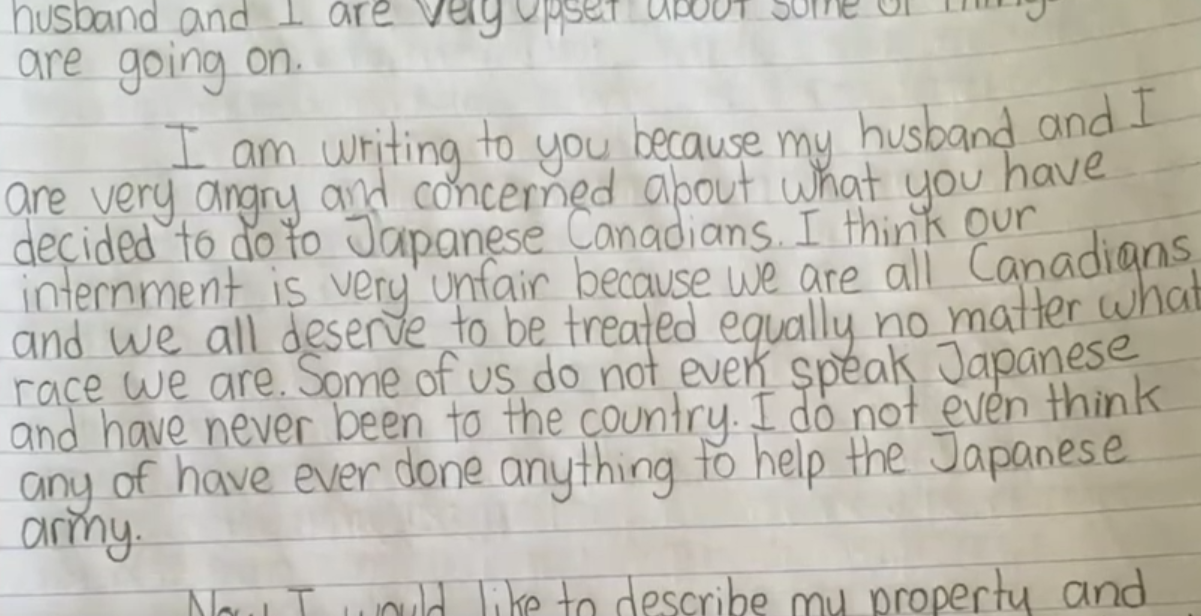 husband and I are very upset about some of
are going on.
I am writing to you because my husband and I
are very angry and concerned about what you have
decided to do to Japanese Canadians. I think our
internment is very unfair because we are all Canadians
and we all deserve to be treated equally no matter what
race we are. Some of us do not even speak Japanese
and have never been to the country. I do not even think
any of have ever done anything to help the Japanese
army.
Now I would like to describe my property and